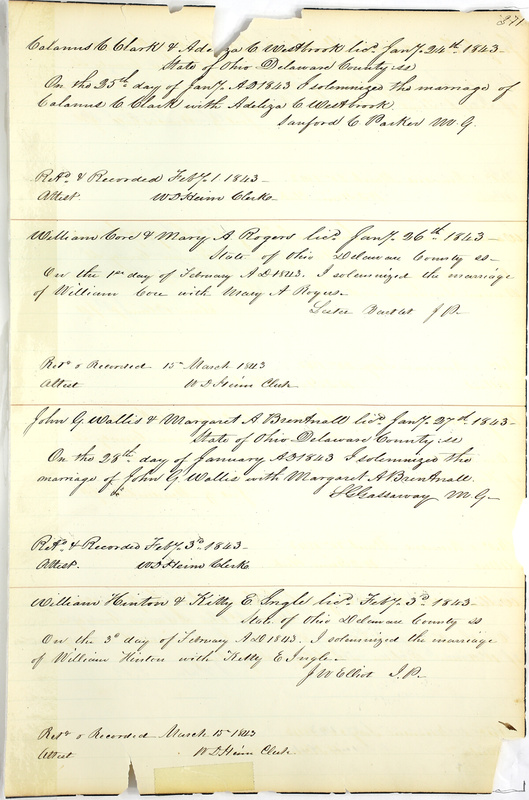 271
Calanus C Clark & Adeliza C Westbrook licd Jany. 24th 1843-
State of Ohio Delaware County: ss
On the 25th day of Jany. AD 1843 I solemnized the marriage of
Calanus C Clark with Adeliza C Westbrook.
Sanford C Parker M. G.
Retd. & Recorded Feby. 1. 1843-
Attest. W D Heim Clerk
William Core & Mary A Rogers licd Jany. 26th 1843-
State of Ohio Delaware County ss-
On the 1st day of February A D 1843. I solemnized the marriage
of William Core with Mary A Rogers-
Bartlet J P.
Retd & Recorded 15th March 1843
Attest W D Heim Clerk
John G. Wallis & Margaret A Brentnall licd Jany. 27th 1843-
State of Ohio Delaware County: ss
On the 28th day of January AD 1843 I solemnized the
marriage of John G Wallis with Margaret A Brentnall.
Gassaway M. G-
Retd. & Recorded Feby. 3d. 1843-
Attest. W D Heim Clerk
William Hinton & Kitty E. Ingle licd. Feby. 3d. 1843-
State of Ohio Delaware County ss
On the 3d day of February A D 1843. I solemnized the marriage
of William Hinton with Kitty E Ingle-
J W Elliot J. P.
Retd & Recorded March 15 1843
Attest W D Heim Clerk